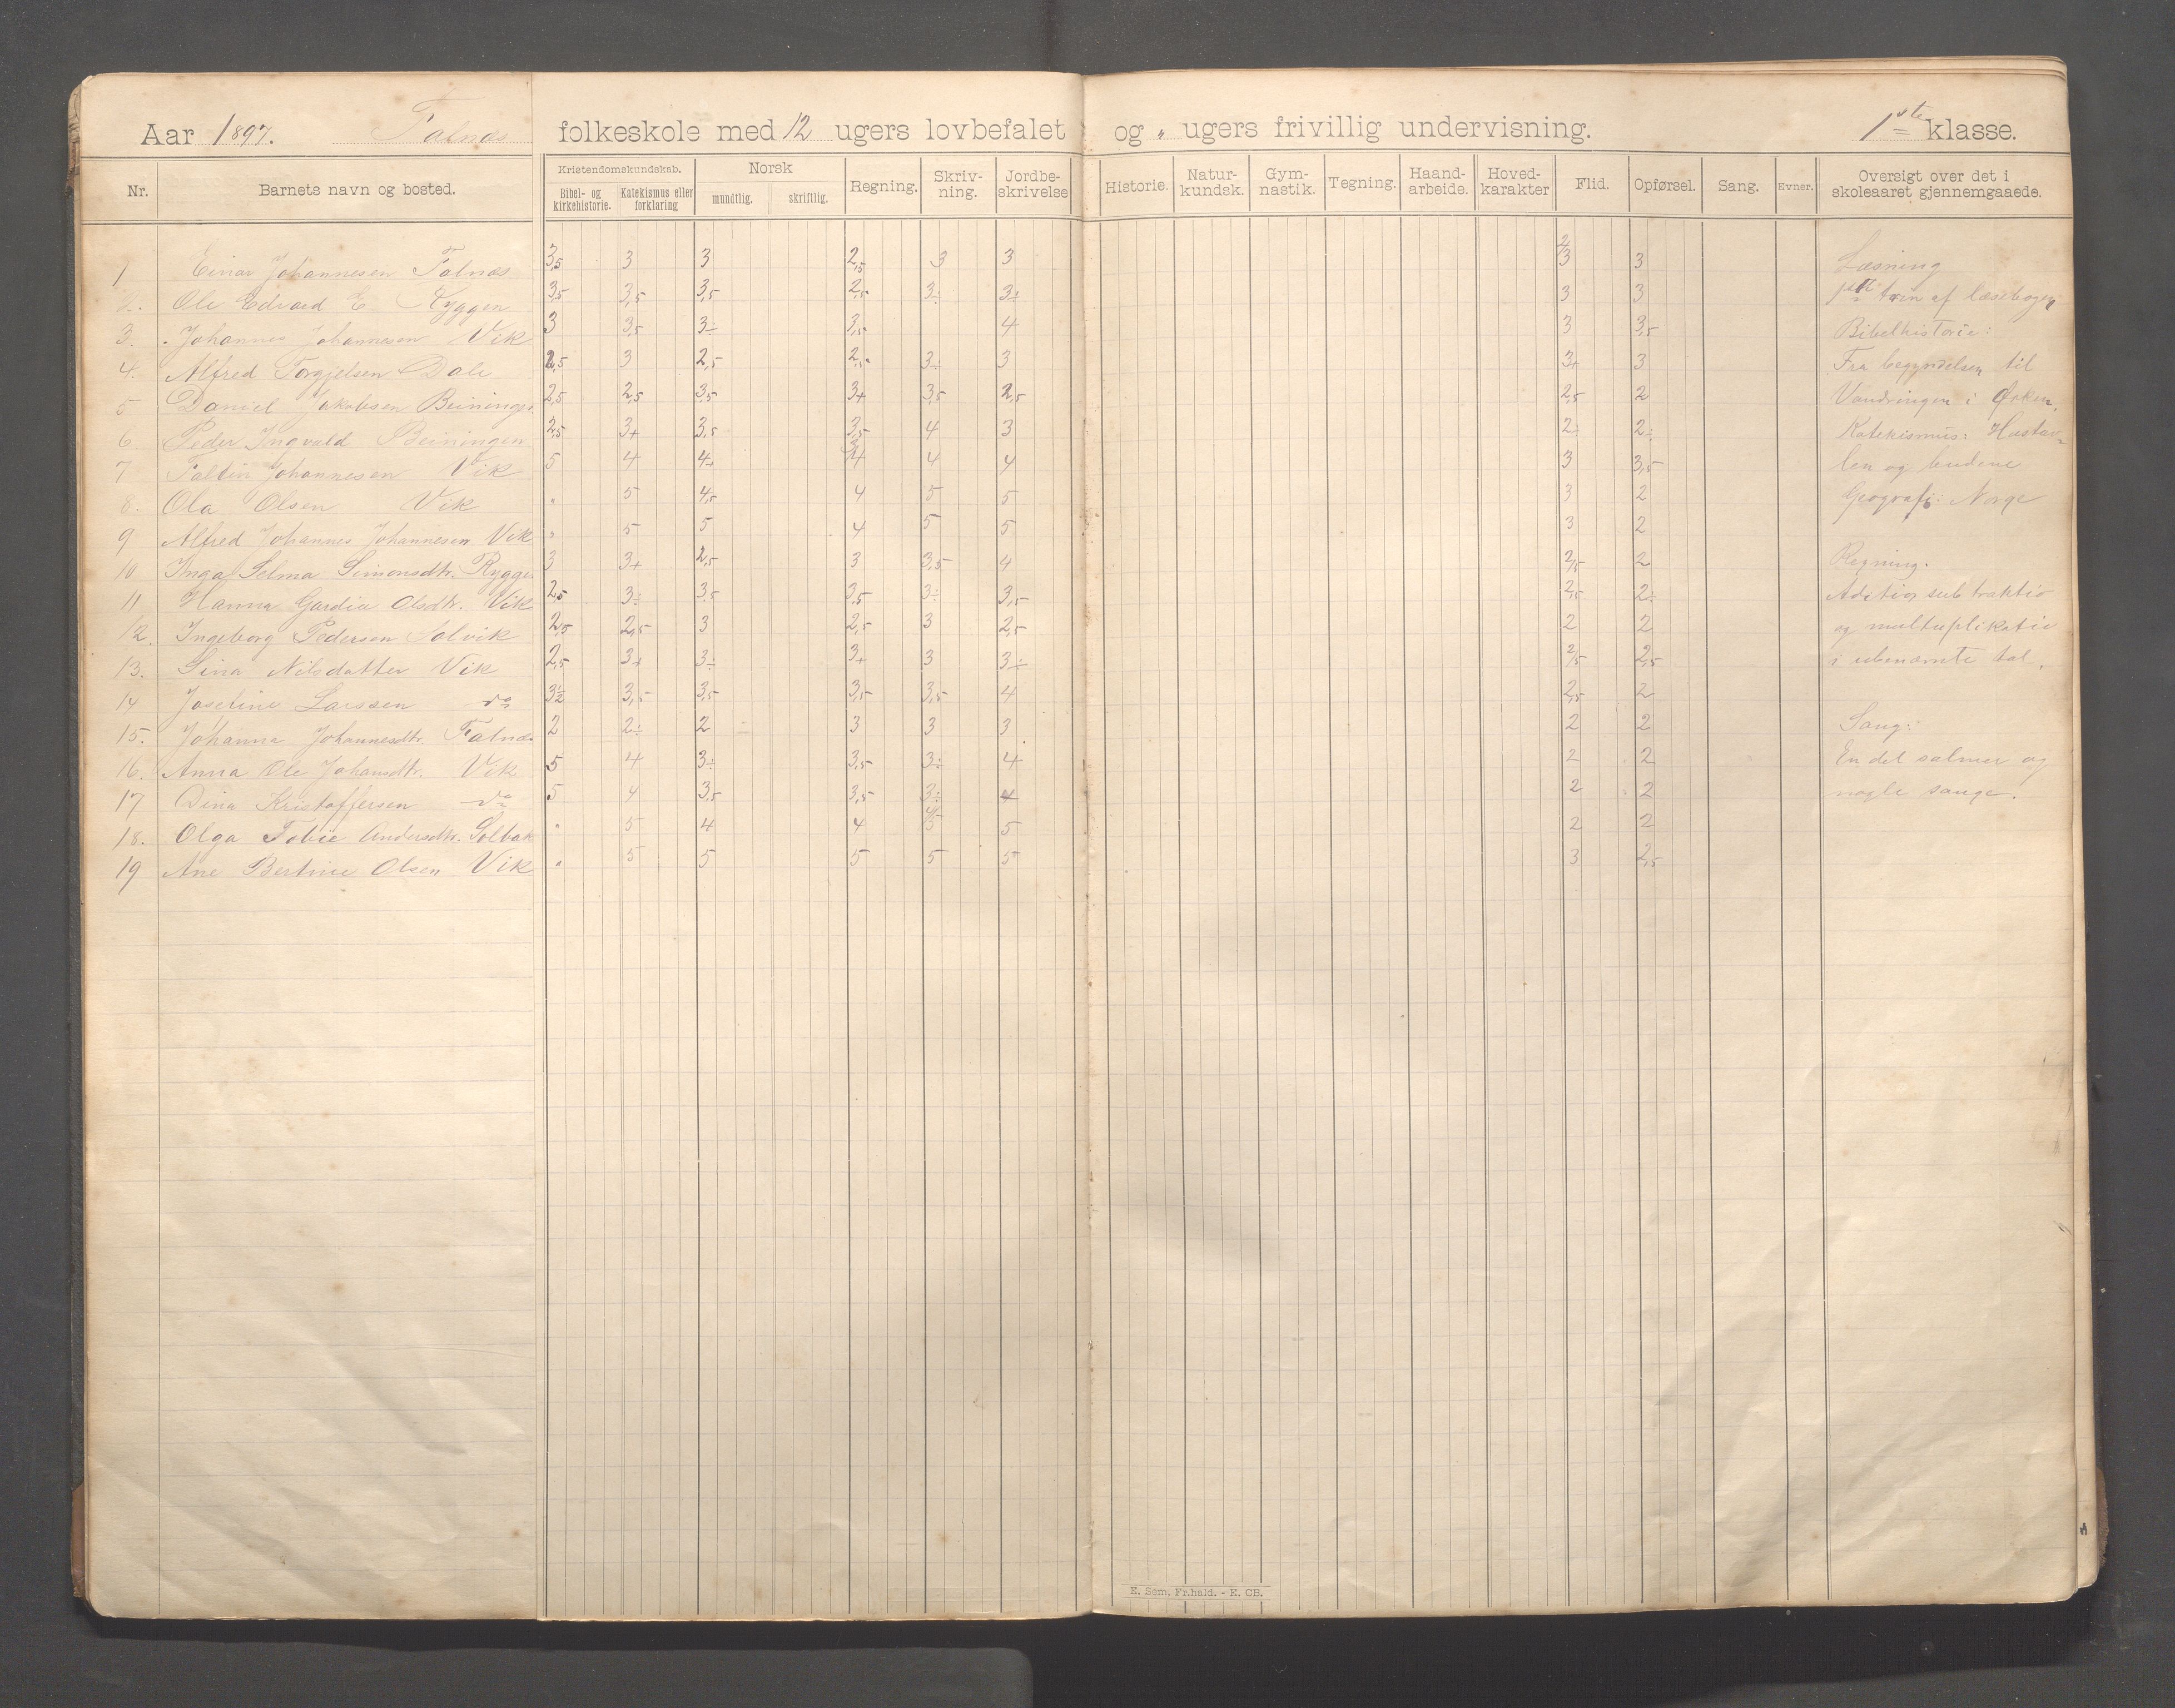 Aar 1897. Falnæs folkeskole med 12 ugers lovbefalet og „ ugers frivillig undervisning. 1ste klasse.
Nr. Barnets navn og bosted. Kristendomskundskab. Bibel- og kirkehistorie. Katekismus eller forklaring Norsk mundtlig. skriftlig. Regning. Skriv-ning. Jordbe-skrivelse Historie. Natur-kundsk. Gym-nastik. Tegning. Haand-arbeide. Hoved-karakter Flid. Opførsel. Sang. Evner. Oversigt over det i skoleaaret gjennemgaaede.
1 Einar Johannesen Falnæs 3,5 3 3 2,5 3 3 3 3 Læsning
2. Ole Edvard E Ryggen 3,5 3,5 3,5 2,5 3÷ 3+ 3 3 1ste trin af læsebogen
3. Johannes Johannesen Vik 3 3,5 3÷ 3,5 4 3 3,5 Bibelhistorie:
4. Alfred Torgjelsen Dale 2,5 3 2,5 2,5 3÷ 3 3+ 3 Fra begyndelsen til
5 Daniel Jakobsen Beiningen 2,5 2,5 3,5 3+ 3,5 2,5 2,5 2 Vandringen i Ørken.
6. Peder Ingvald Beiningen 2,5 3+ 3,5 3,5 4 3 2÷ 2÷ Katekismus: Hustav-
7 Johannesen Vik 5 4 4+ 4 4 4 3 3,5 len og budene
8. Ola Olsen Vik „ 5 4,5 4 5 5 3 2 Geografi: Norge
9 Alfred Johannes Johannesen Vik „ 5 5 4 5 5 3 2
10 Inga Selma Simonsdtr. Ryggen 3 3+ 2,5 3 3,5 4 2,5 2 Regning.
11 Hanna Gardia Olsdtr. Vik 2,5 3÷ 3,5 3,5 3÷ 3,5 2,5 2÷ Adition subtraktio
12. Ingeborg Pedersen Solvik 2,5 2,5 3 2,5 3 2,5 2 2 og multuplikatio
13. Sina Nilsdatter Vik 2,5 3+ 3÷ 3+ 3 3÷ 2,5 2,5 i ubenævnte tal.
14 Josefine Larssen do 3½ 3,5 3,5 3,5 3,5 4 2,5 2
15. Johanna Johannesdtr. Falnæs 2 2÷ 2 3 3 3 2 2 Sang:
16. Anna Ole Johansdtr. Vik 5 4 3÷ 3,5 3÷ 4 2 2 En del salmer og
17 Dina Kristoffersen do 5 4 3,5 3,5 3÷ 4 2 2 nogle sange.
18. Olga Tobie Andersdtr. Solbak „ 5 4 4 5 5 2 2
19 Ane Bertine Olsen Vik „ 5 5 5 5 5 3 2,5
E. Sem. Fr.hald. - E. CB.